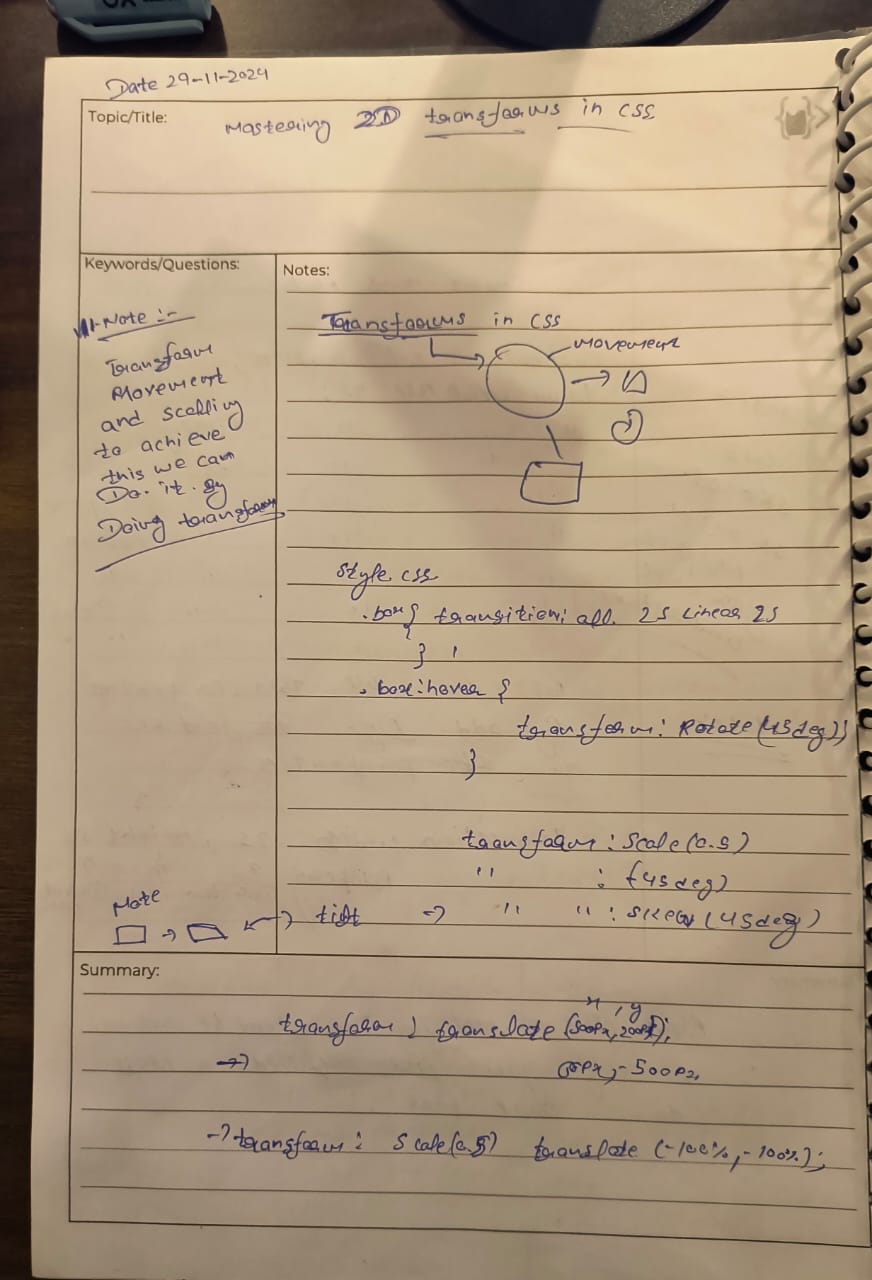 Date 29-11-2024
Topic/Title:
Mastering 2D transforms in CSS
Keywords/Questions:
Notes:
Note :-
Transform
Movement
and scalling
to achieve
this we can
Do. it. By
Doing transform
Transforms in CSS
Movement
style.css
.box{ transition: all 2s linear 2s
}
.box:hover {
transform: Rotate(45deg);
}
transform : Scale(0.5)
" : (45deg)
tilt → " " : skew (45deg)
Note
Summary:
x, y
transform : translate (500px, 200px);
0px, -500px,
→ transform : Scale(0.5) translate (-100%, -100%);